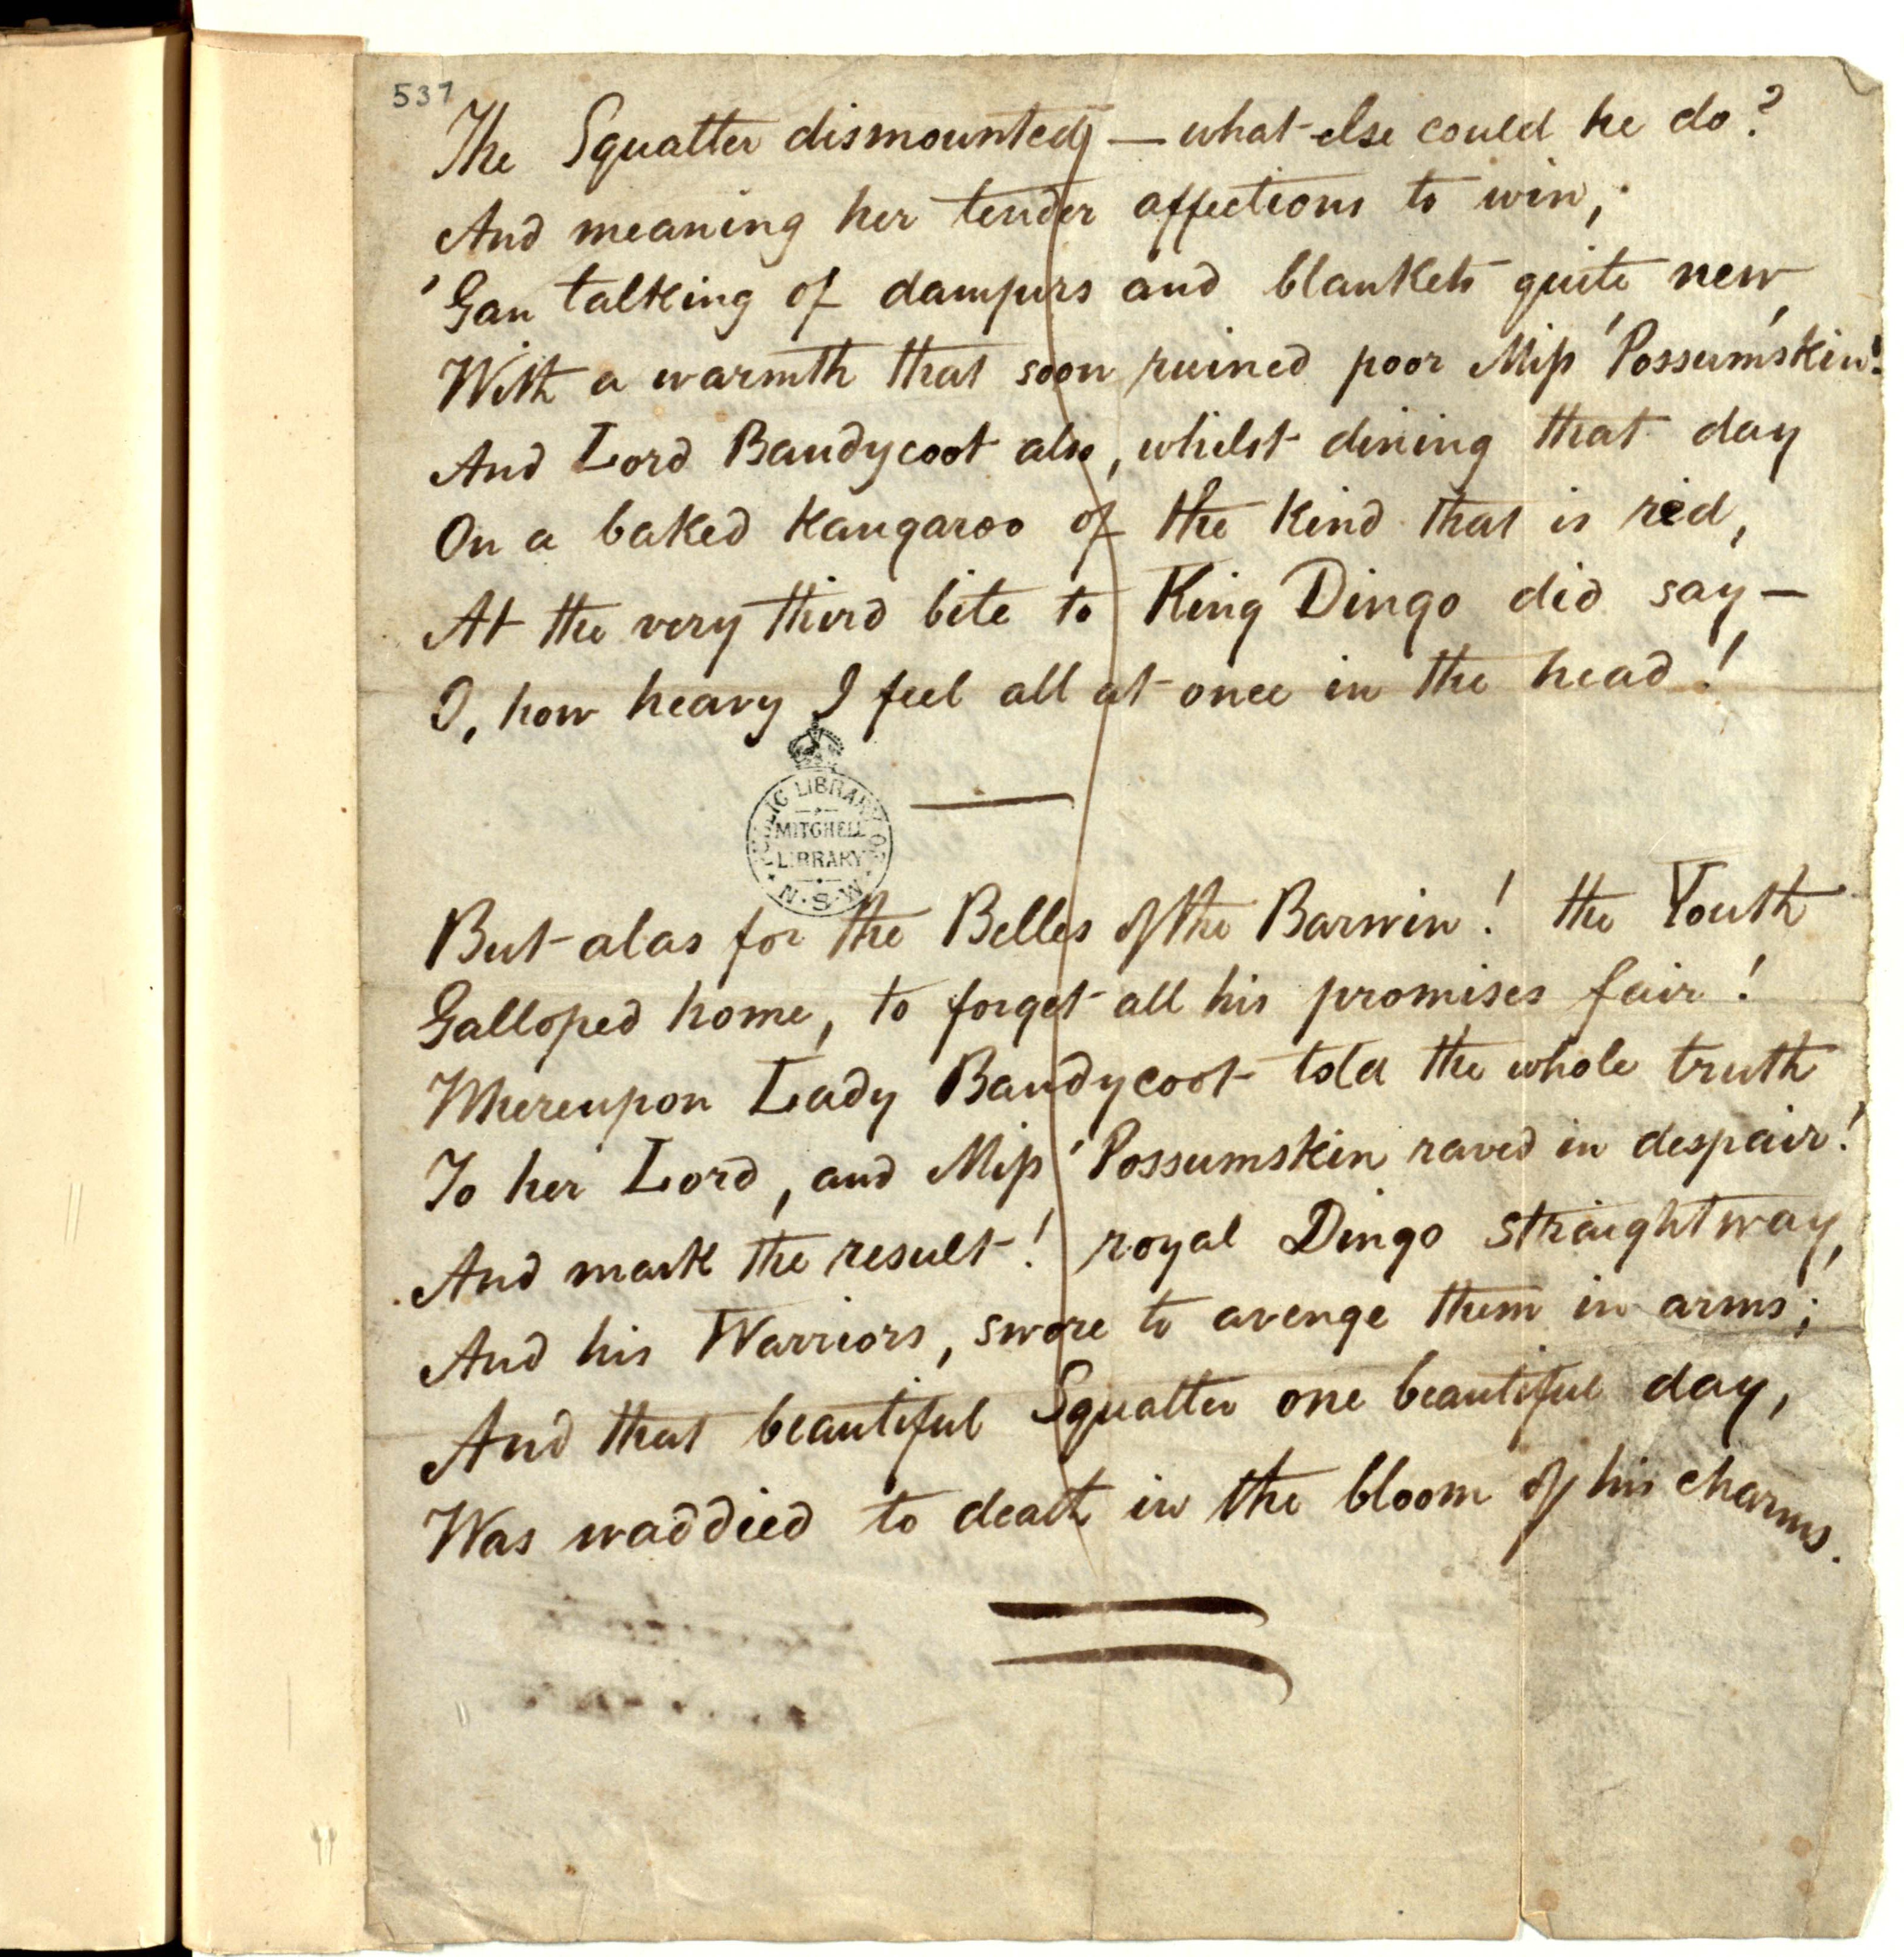 537
The Squatter dismounted, — what else could he do?
And meaning her tender affections to win,
'Gan talking of dampers and blankets quite new,
With a warmth that soon ruined poor Miss 'Possumskin!
And Lord Bandycoot also, whilst dining that day
On a baked Kangaroo of the kind that is red,
At the very third bite to King Dingo did say —
O, how heavy I feel all at once in the head!
PUBLIC LIBRARY OF
MITCHELL
LIBRARY
N·S·W
But alas for the Belles of the Barwin! the Youth
Galloped home, to forget all his promises fair!
Whereupon Lady Bandycoot told the whole truth
To her Lord, and Miss 'Possumskin raved in despair!
And mark the result! royal Dingo straightway,
And his Warriors, swore to avenge them in arms;
And that beautiful Squatter one beautiful day,
Was waddied to death in the bloom of his charms.